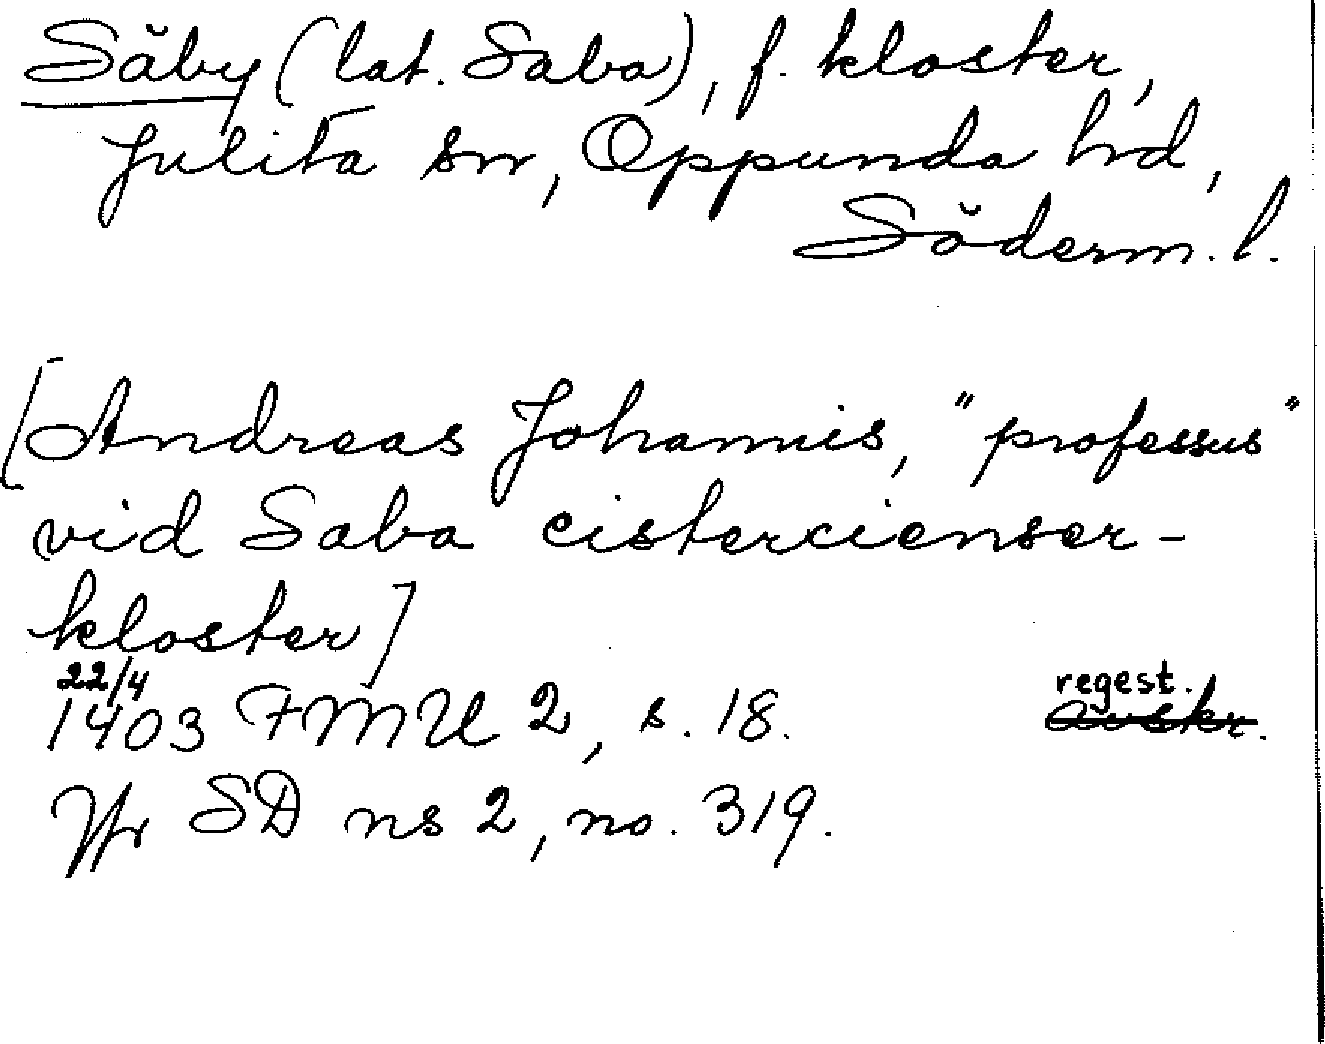 Säby (lat. Saba), f. kloster,
Julita sn, Oppunda hd,
Söderm. l.
[Andreas Johannis, "professus"
vid Saba cistercienser-
kloster]
22/4
1403 FMU 2, s. 18.
regest.
avskr.
Jfr SD ns 2, no. 319.